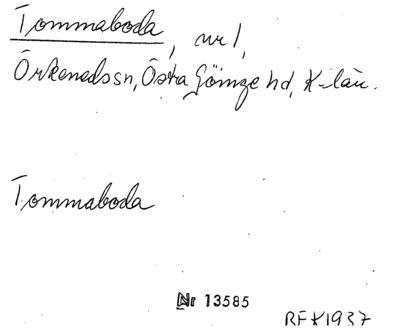 Tommaboda, nr 1,
Örkenedssn, Östra Göinge hd, K-län.
Tommaboda
Nr 13585
RFK1937